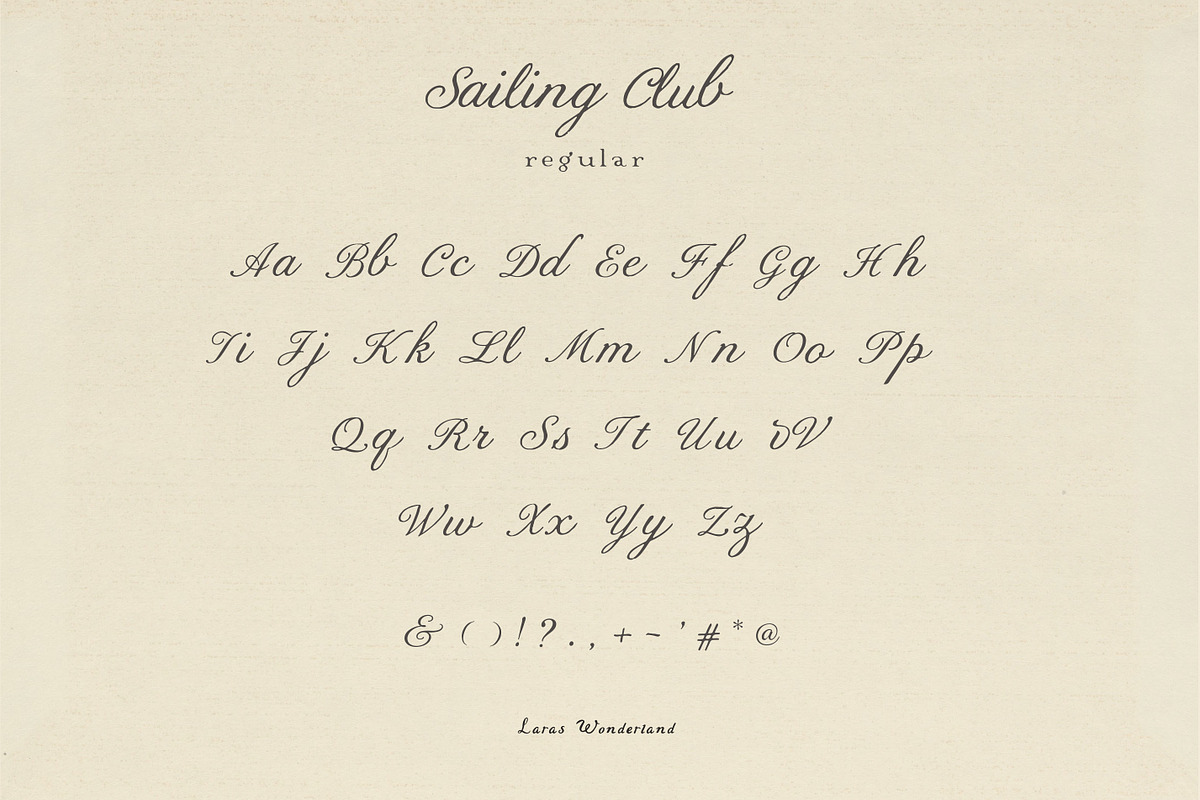 Sailing Club
regular
Aa Bb Cc Dd Ee Ff Gg Hh
Ii Jj Kk Ll Mm Nn Oo Pp
Qq Rr Ss Tt Uu vV
Ww Xx Yy Zz
& ( ) ! ? . , + - ' # * @
Laras Wonderland